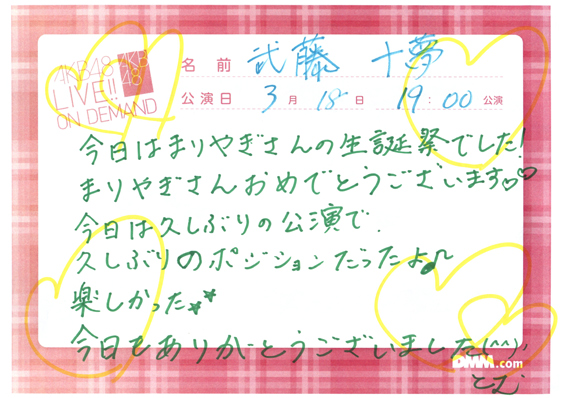 AKB48
LIVE!!
ON DEMAND
AKB
48
名前 武藤 十夢
公演日 3月 18日 19:00公演
今日はまりやぎさんの生誕祭でした!
まりやぎさんおめでとうございます♡♡
今日は久しぶりの公演で、
久しぶりのポジションだったよ♪
楽しかった★★
今日もありがとうございました(^^)
DMM.com
とむ